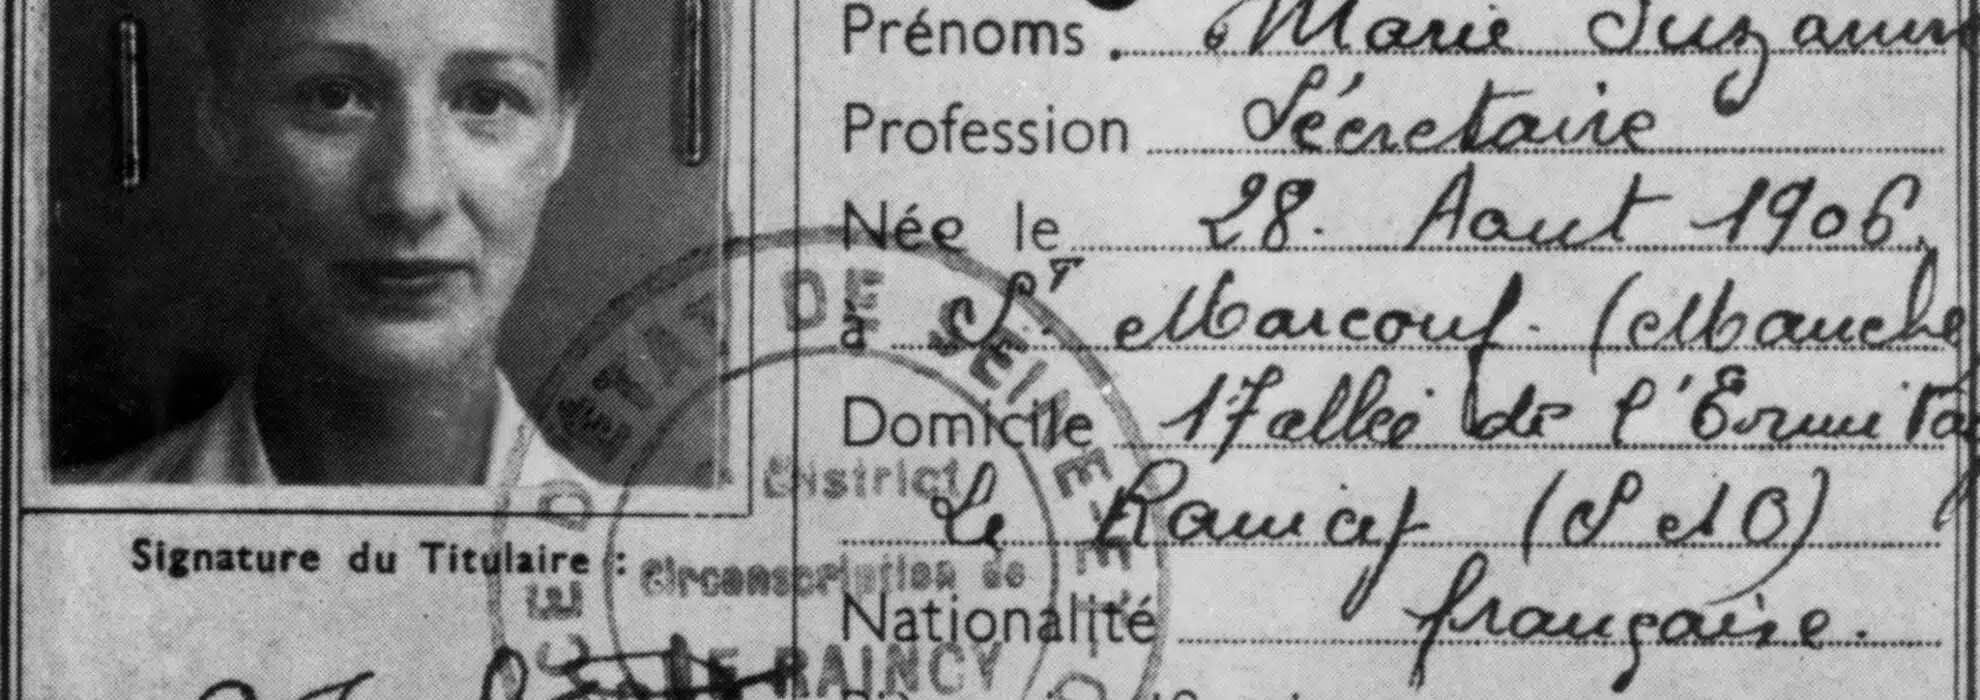 Prénoms . Marie Suzanne
Profession Sécretaire
Née le 28. Aout 1906.
à St Marcouf. (Manche
Domicile 17 allée de l'Ermita
Le Raincy (S et O)
Nationalité française.
Signature du Titulaire :
DE SEINE-ET-
District
Circonscription de
LE RAINCY